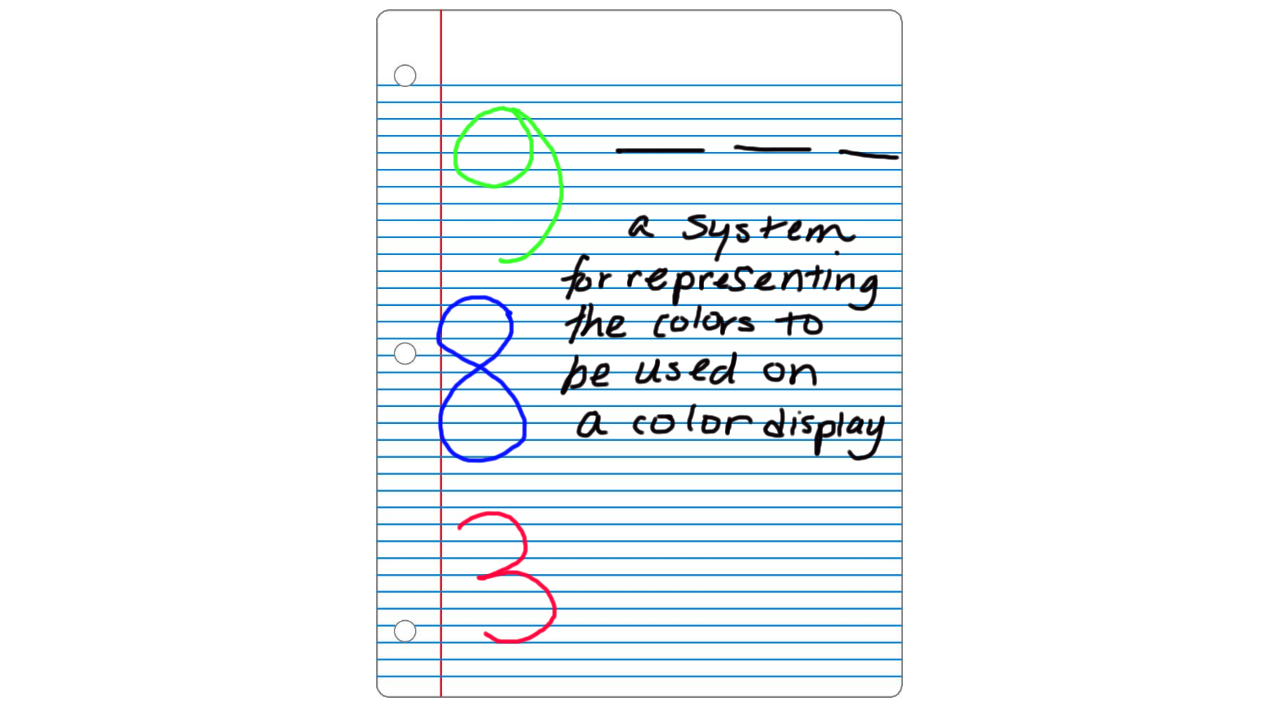 9
a system
for representing
the colors to
8
be used on
a color display
3